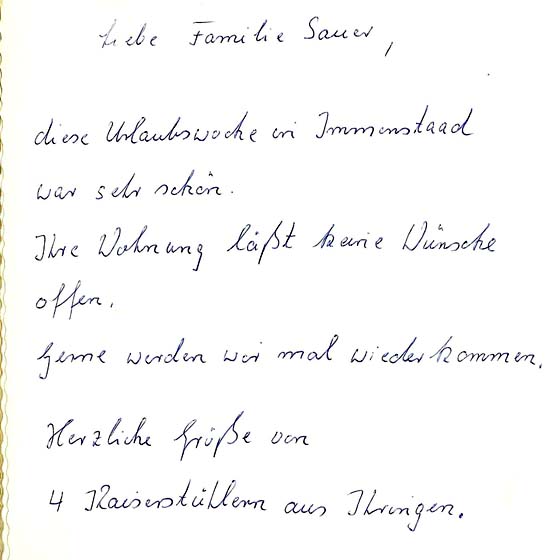 Liebe Familie Sauer,
diese Urlaubswoche in Immenstaad
war sehr schön.
Ihre Wohnung läßt keine Wünsche
offen.
Gerne werden wir mal wiederkommen.
Herzliche Grüße von
4 Kaiserstühlern aus Ihringen.